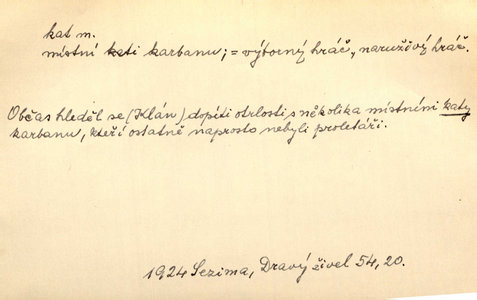 kat m.
místní kati karbanu; = výborný hráč, naruživý hráč.
Občas hleděl se (Klán) dopíti otrlosti s několika místními katy
karbanu, kteří ostatně naprosto nebyli proletáři.
1924 Sezima, Dravý živel 54, 20.